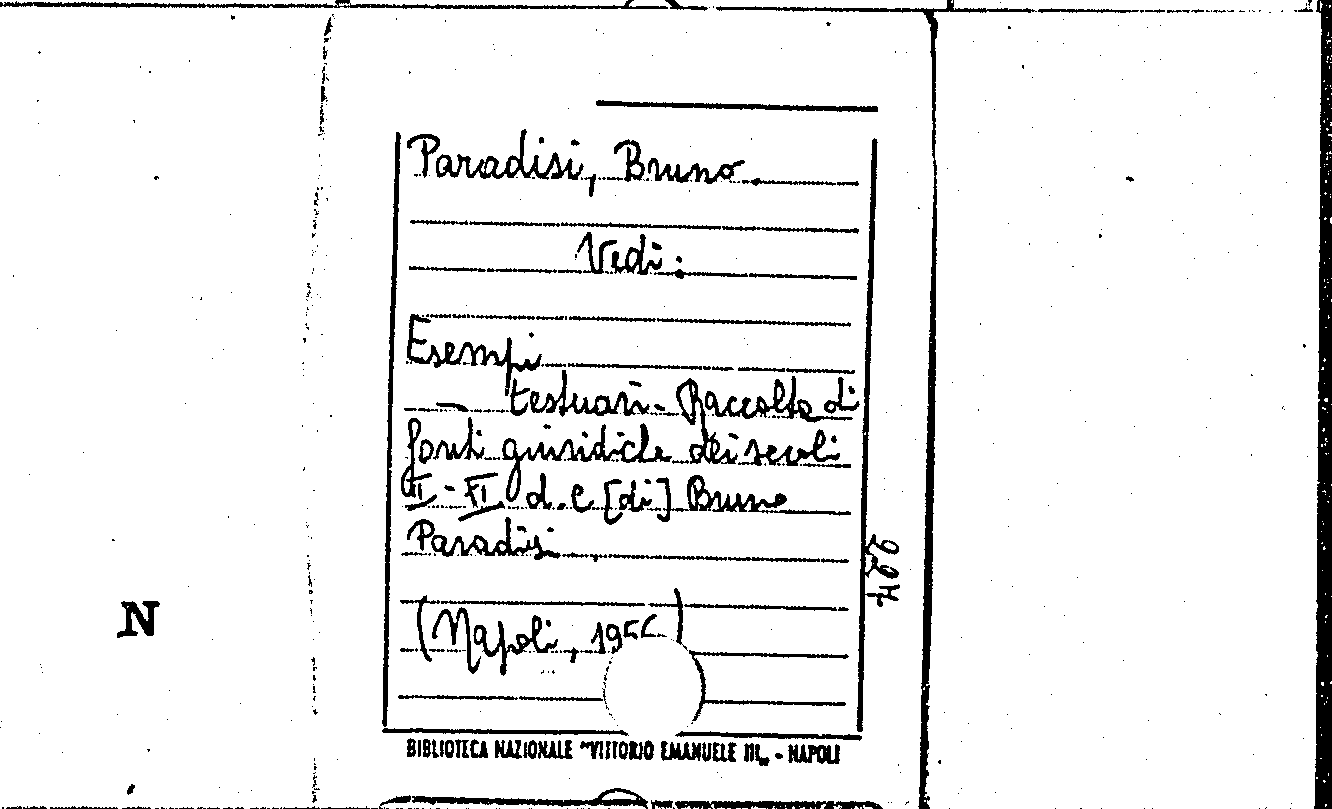 Paradisi, Bruno.
Vedi:
Esempi
— testuari - Raccolta di
fonti giuridiche dei secoli
II - XI d.C [di] Bruno
Paradisi
(Napoli, 1956)
N
BIBLIOTECA NAZIONALE "VITTORIO EMANUELE III„ - NAPOLI